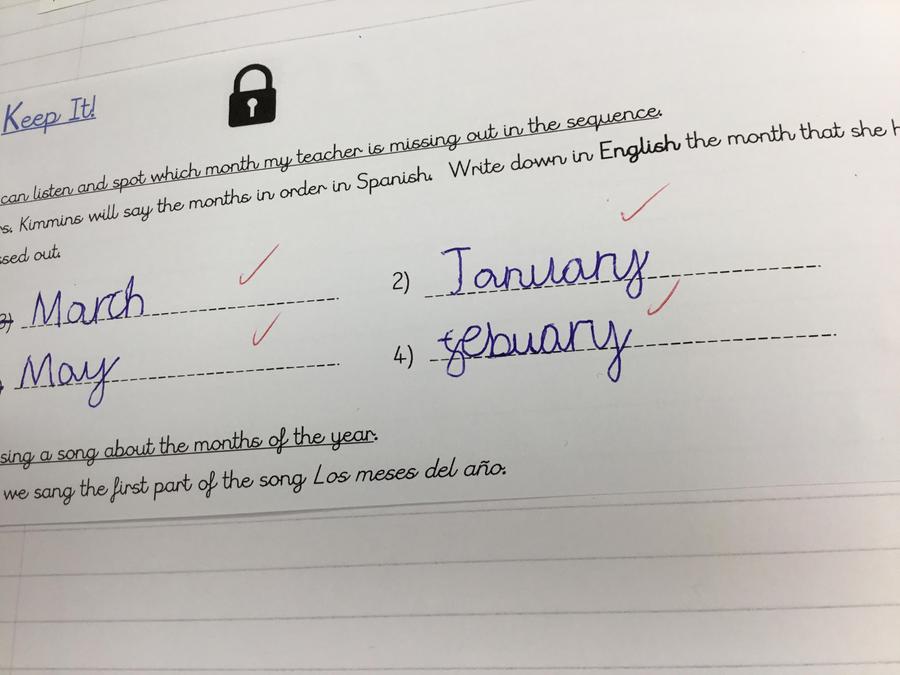 Keep It!
can listen and spot which month my teacher is missing out in the sequence.
Kimmins will say the months in order in Spanish. Write down in English the month that she
out.
March 2) January
May 4) febuary
sing a song about the months of the year.
we sang the first part of the song Los meses del año.